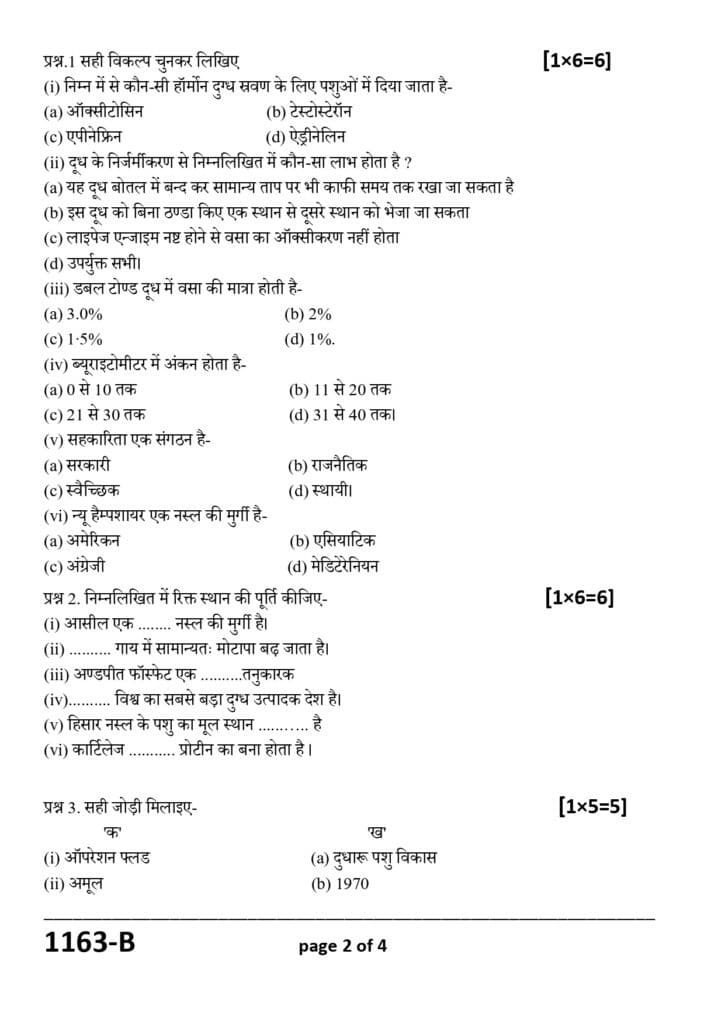 प्रश्न.1 सही विकल्प चुनकर लिखिए [1×6=6]
(i) निम्न में से कौन-सी हॉर्मोन दुग्ध स्रवण के लिए पशुओं में दिया जाता है-
(a) ऑक्सीटोसिन (b) टेस्टोस्टेरॉन
(c) एपीनेफ्रिन (d) ऐड्रीनेलिन
(ii) दूध के निर्जर्मीकरण से निम्नलिखित में कौन-सा लाभ होता है ?
(a) यह दूध बोतल में बन्द कर सामान्य ताप पर भी काफी समय तक रखा जा सकता है
(b) इस दूध को बिना ठण्डा किए एक स्थान से दूसरे स्थान को भेजा जा सकता
(c) लाइपेज एन्जाइम नष्ट होने से वसा का ऑक्सीकरण नहीं होता
(d) उपर्युक्त सभी।
(iii) डबल टोण्ड दूध में वसा की मात्रा होती है-
(a) 3.0% (b) 2%
(c) 1·5% (d) 1%.
(iv) ब्यूराइटोमीटर में अंकन होता है-
(a) 0 से 10 तक (b) 11 से 20 तक
(c) 21 से 30 तक (d) 31 से 40 तक।
(v) सहकारिता एक संगठन है-
(a) सरकारी (b) राजनैतिक
(c) स्वैच्छिक (d) स्थायी।
(vi) न्यू हैम्पशायर एक नस्ल की मुर्गी है-
(a) अमेरिकन (b) एसियाटिक
(c) अंग्रेजी (d) मेडिटेरेनियन
प्रश्न 2. निम्नलिखित में रिक्त स्थान की पूर्ति कीजिए- [1×6=6]
(i) आसील एक ........ नस्ल की मुर्गी है।
(ii) .......... गाय में सामान्यतः मोटापा बढ़ जाता है।
(iii) अण्डपीत फॉस्फेट एक ..........तनुकारक
(iv).......... विश्व का सबसे बड़ा दुग्ध उत्पादक देश है।
(v) हिसार नस्ल के पशु का मूल स्थान ............ है
(vi) कार्टिलेज ........... प्रोटीन का बना होता है।
प्रश्न 3. सही जोड़ी मिलाइए- [1×5=5]
'क' 'ख'
(i) ऑपरेशन फ्लड (a) दुधारू पशु विकास
(ii) अमूल (b) 1970
1163-B page 2 of 4